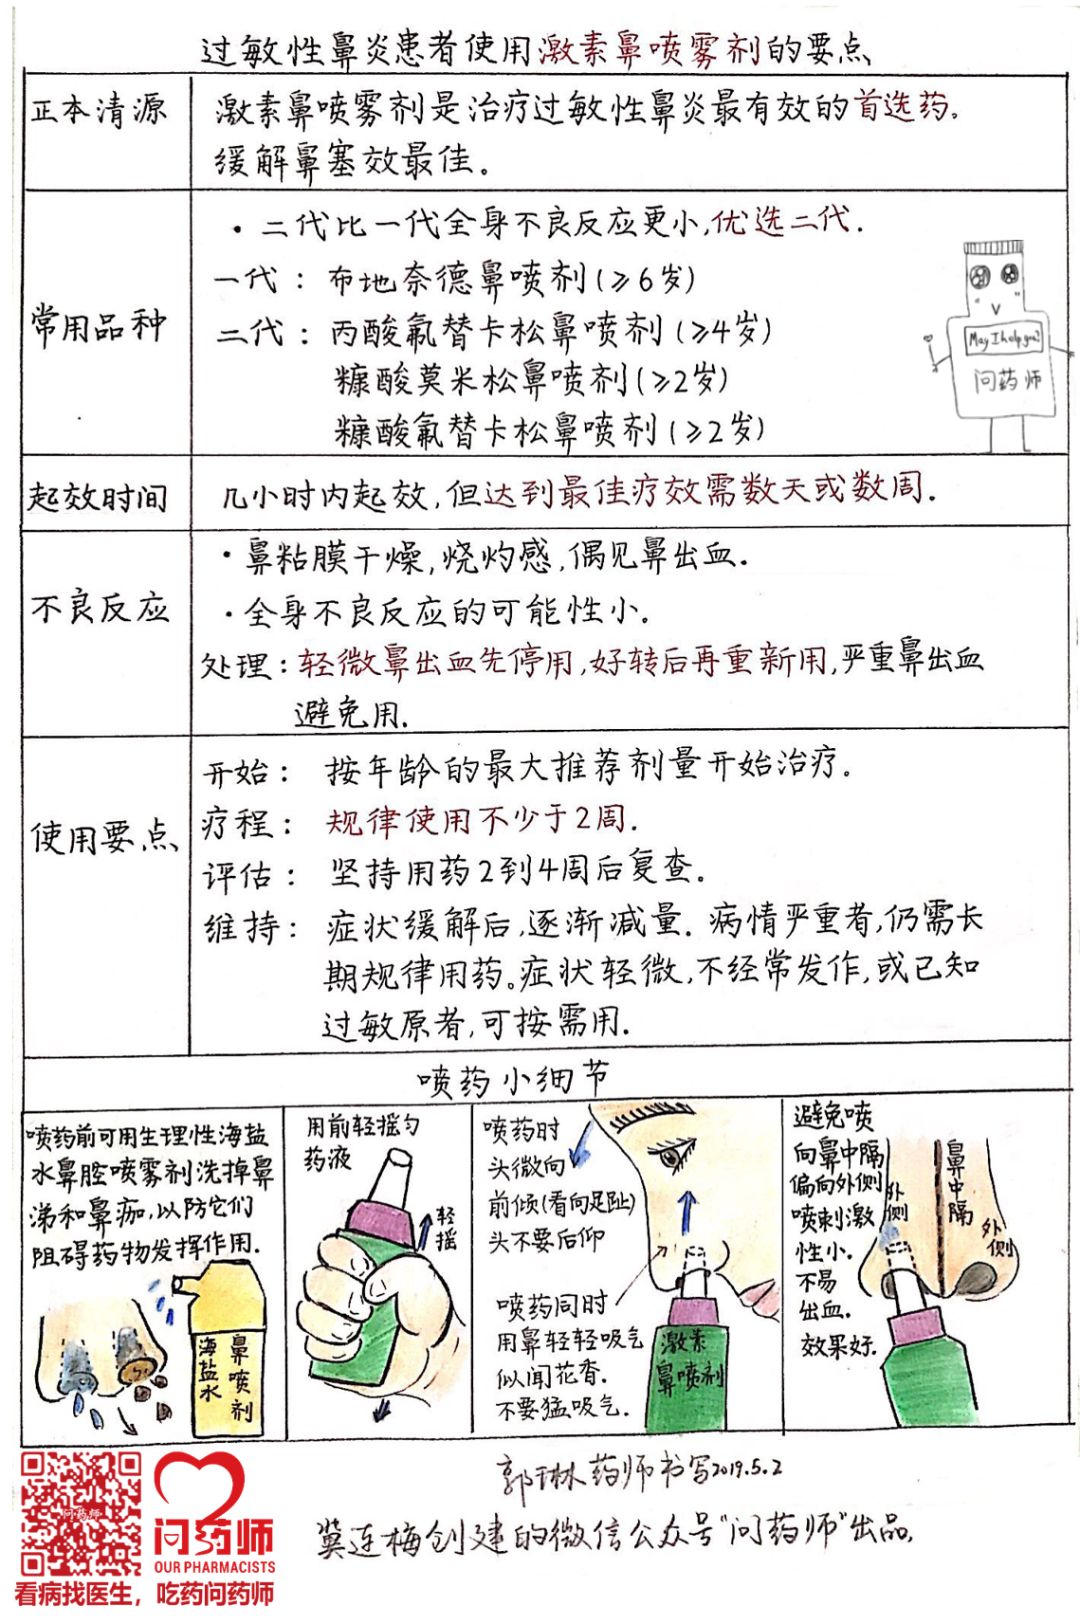 过敏性鼻炎患者使用激素鼻喷雾剂的要点
正本清源
激素鼻喷雾剂是治疗过敏性鼻炎最有效的首选药。
缓解鼻塞效最佳。
常用品种
·二代比一代全身不良反应更小,优选二代.
一代：布地奈德鼻喷剂(≥6岁)
二代：丙酸氟替卡松鼻喷剂(≥4岁)
糠酸莫米松鼻喷剂(≥2岁)
糠酸氟替卡松鼻喷剂(≥2岁)
May I help you?
问药师
起效时间
几小时内起效,但达到最佳疗效需数天或数周.
不良反应
·鼻粘膜干燥,烧灼感,偶见鼻出血.
·全身不良反应的可能性小.
处理：轻微鼻出血先停用,好转后再重新用,严重鼻出血
避免用.
使用要点
开始：按年龄的最大推荐剂量开始治疗。
疗程：规律使用不少于2周.
评估：坚持用药2到4周后复查。
维持：症状缓解后,逐渐减量.病情严重者,仍需长
期规律用药。症状轻微,不经常发作,或已知
过敏原者,可按需用.
喷药小细节
喷药前可用生理性海盐
水鼻腔喷雾剂洗掉鼻
涕和鼻痂,以防它们
阻碍药物发挥作用.
海盐水
鼻喷剂
用前轻摇匀
药液
轻摇
喷药时
头微向
前倾(看向足趾)
头不要后仰
喷药同时
用鼻轻轻吸气
似闻花香.
不要猛吸气.
激素
鼻喷剂
避免喷
向鼻中隔
偏向外侧
喷刺激
性小.
不易
出血.
效果好.
外侧
鼻中隔
外侧
郭琳药师书写2019.5.2
冀连梅创建的微信公众号"问药师"出品.
问药师
问药师
OUR PHARMACISTS
看病找医生，吃药问药师